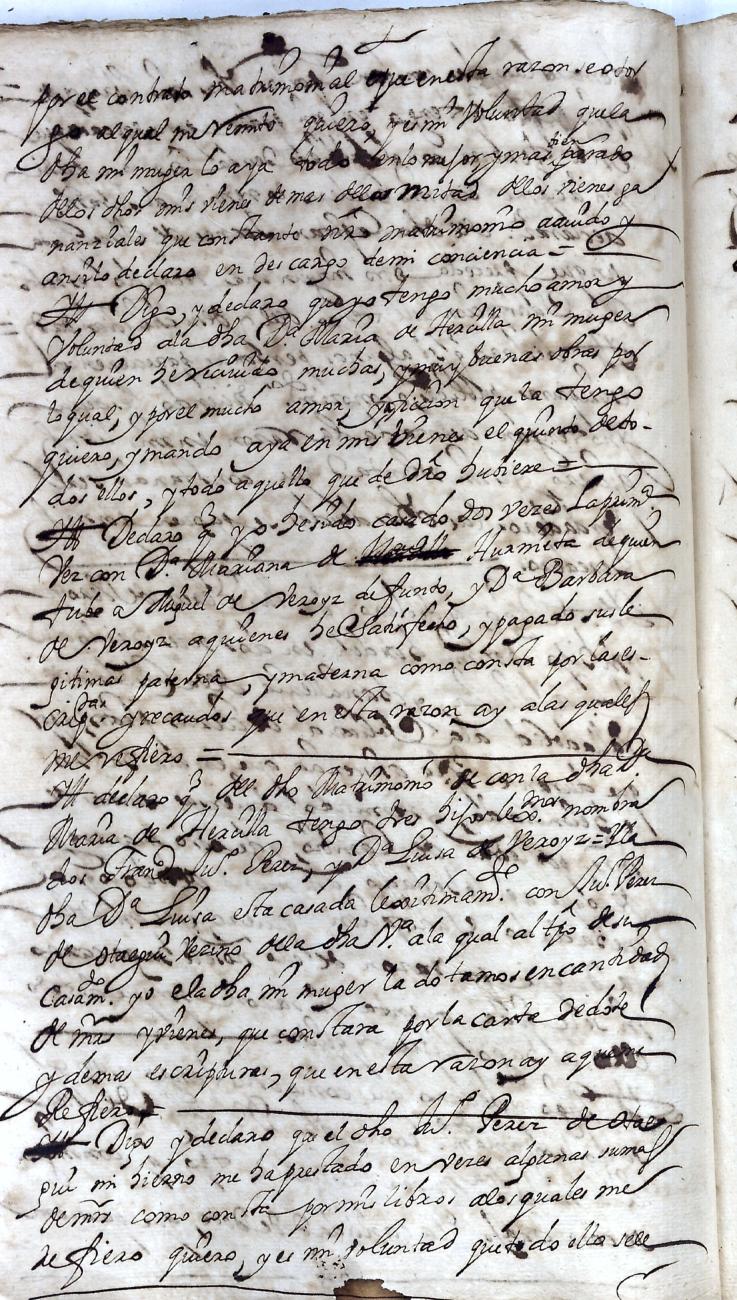 por el contrato matrimonial que en esta razon se otor
go al qual me remito quiero, y es mi voluntad que la
dha mi muger lo aya todo en lo mejor y mas bien parado
de los dhos mis vienes demas de la mitad de los vienes ga
nanziales que constante nro matrimonio aavido y
ansi lo declaro en descargo de mi conciencia =
Digo, y declaro que yo tengo mucho amor y
Voluntad ala dha Da Maria de Hercilla mi muger
de quien he recivido muchas, y muy buenas obras por
lo qual, y por el mucho amor, y aficion que la tengo
quiero, y mando aya en mis vienes el quinto de to-
dos ellos, y todo aquello que de dro hubiere =
Declaro q yo he sido casado dos vezes La prima
Vez con Da Mariana de Hurmeta de quien
tube a Miguel de Veroyz difunto, y Da Barbara
de Veroyz aquienes he Satisfecho, y pagado sus le
gitimas paterna, y materna como consta por las es-
criptas y recaudos que en esta razon ay alas quales
me refiero =
declaro q del dho Matrimonio de con la dha Da
Maria de Hercilla tengo tres hijos lexmos nombra
dos Franco Jus. Perez, y Da Luisa de Veroyz = Y la
dha Da Luisa esta casada lexitimamte con Jus. Perez
de otaegui Vezino de la dha Va ala qual al tpo de su
Casamto yo e la dha mi muger la dotamos en cantidad
de mrs y vienes, que constara por la carta de dote
y demas escripturas, que en esta razon ay a que me
Refiero =
Digo y declaro que el dho Jus. Perez de otae
gui mi hierno me ha prestado en vezes algunas sumas
de mrs como consta por mis libros alos quales me
Refiero quiero, y es mi voluntad que todo ello se le